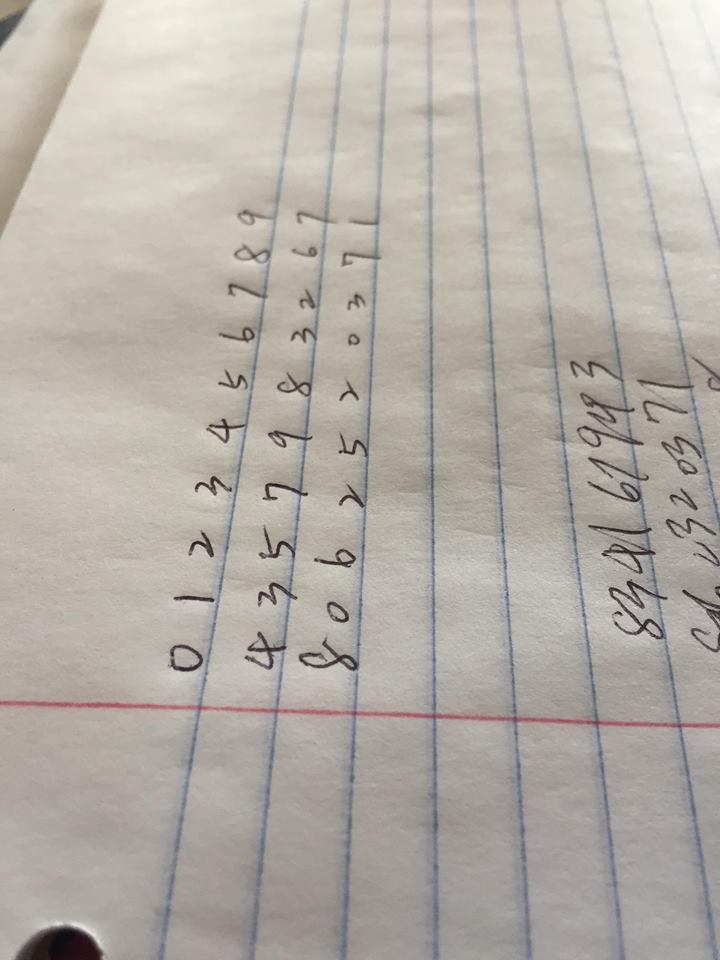 0 1 2 3 4 5 6 7 8 9
4 3 5 7 9 8 3 2 6 7
8 0 6 2 5 2 0 3 7 1
834167943
320371